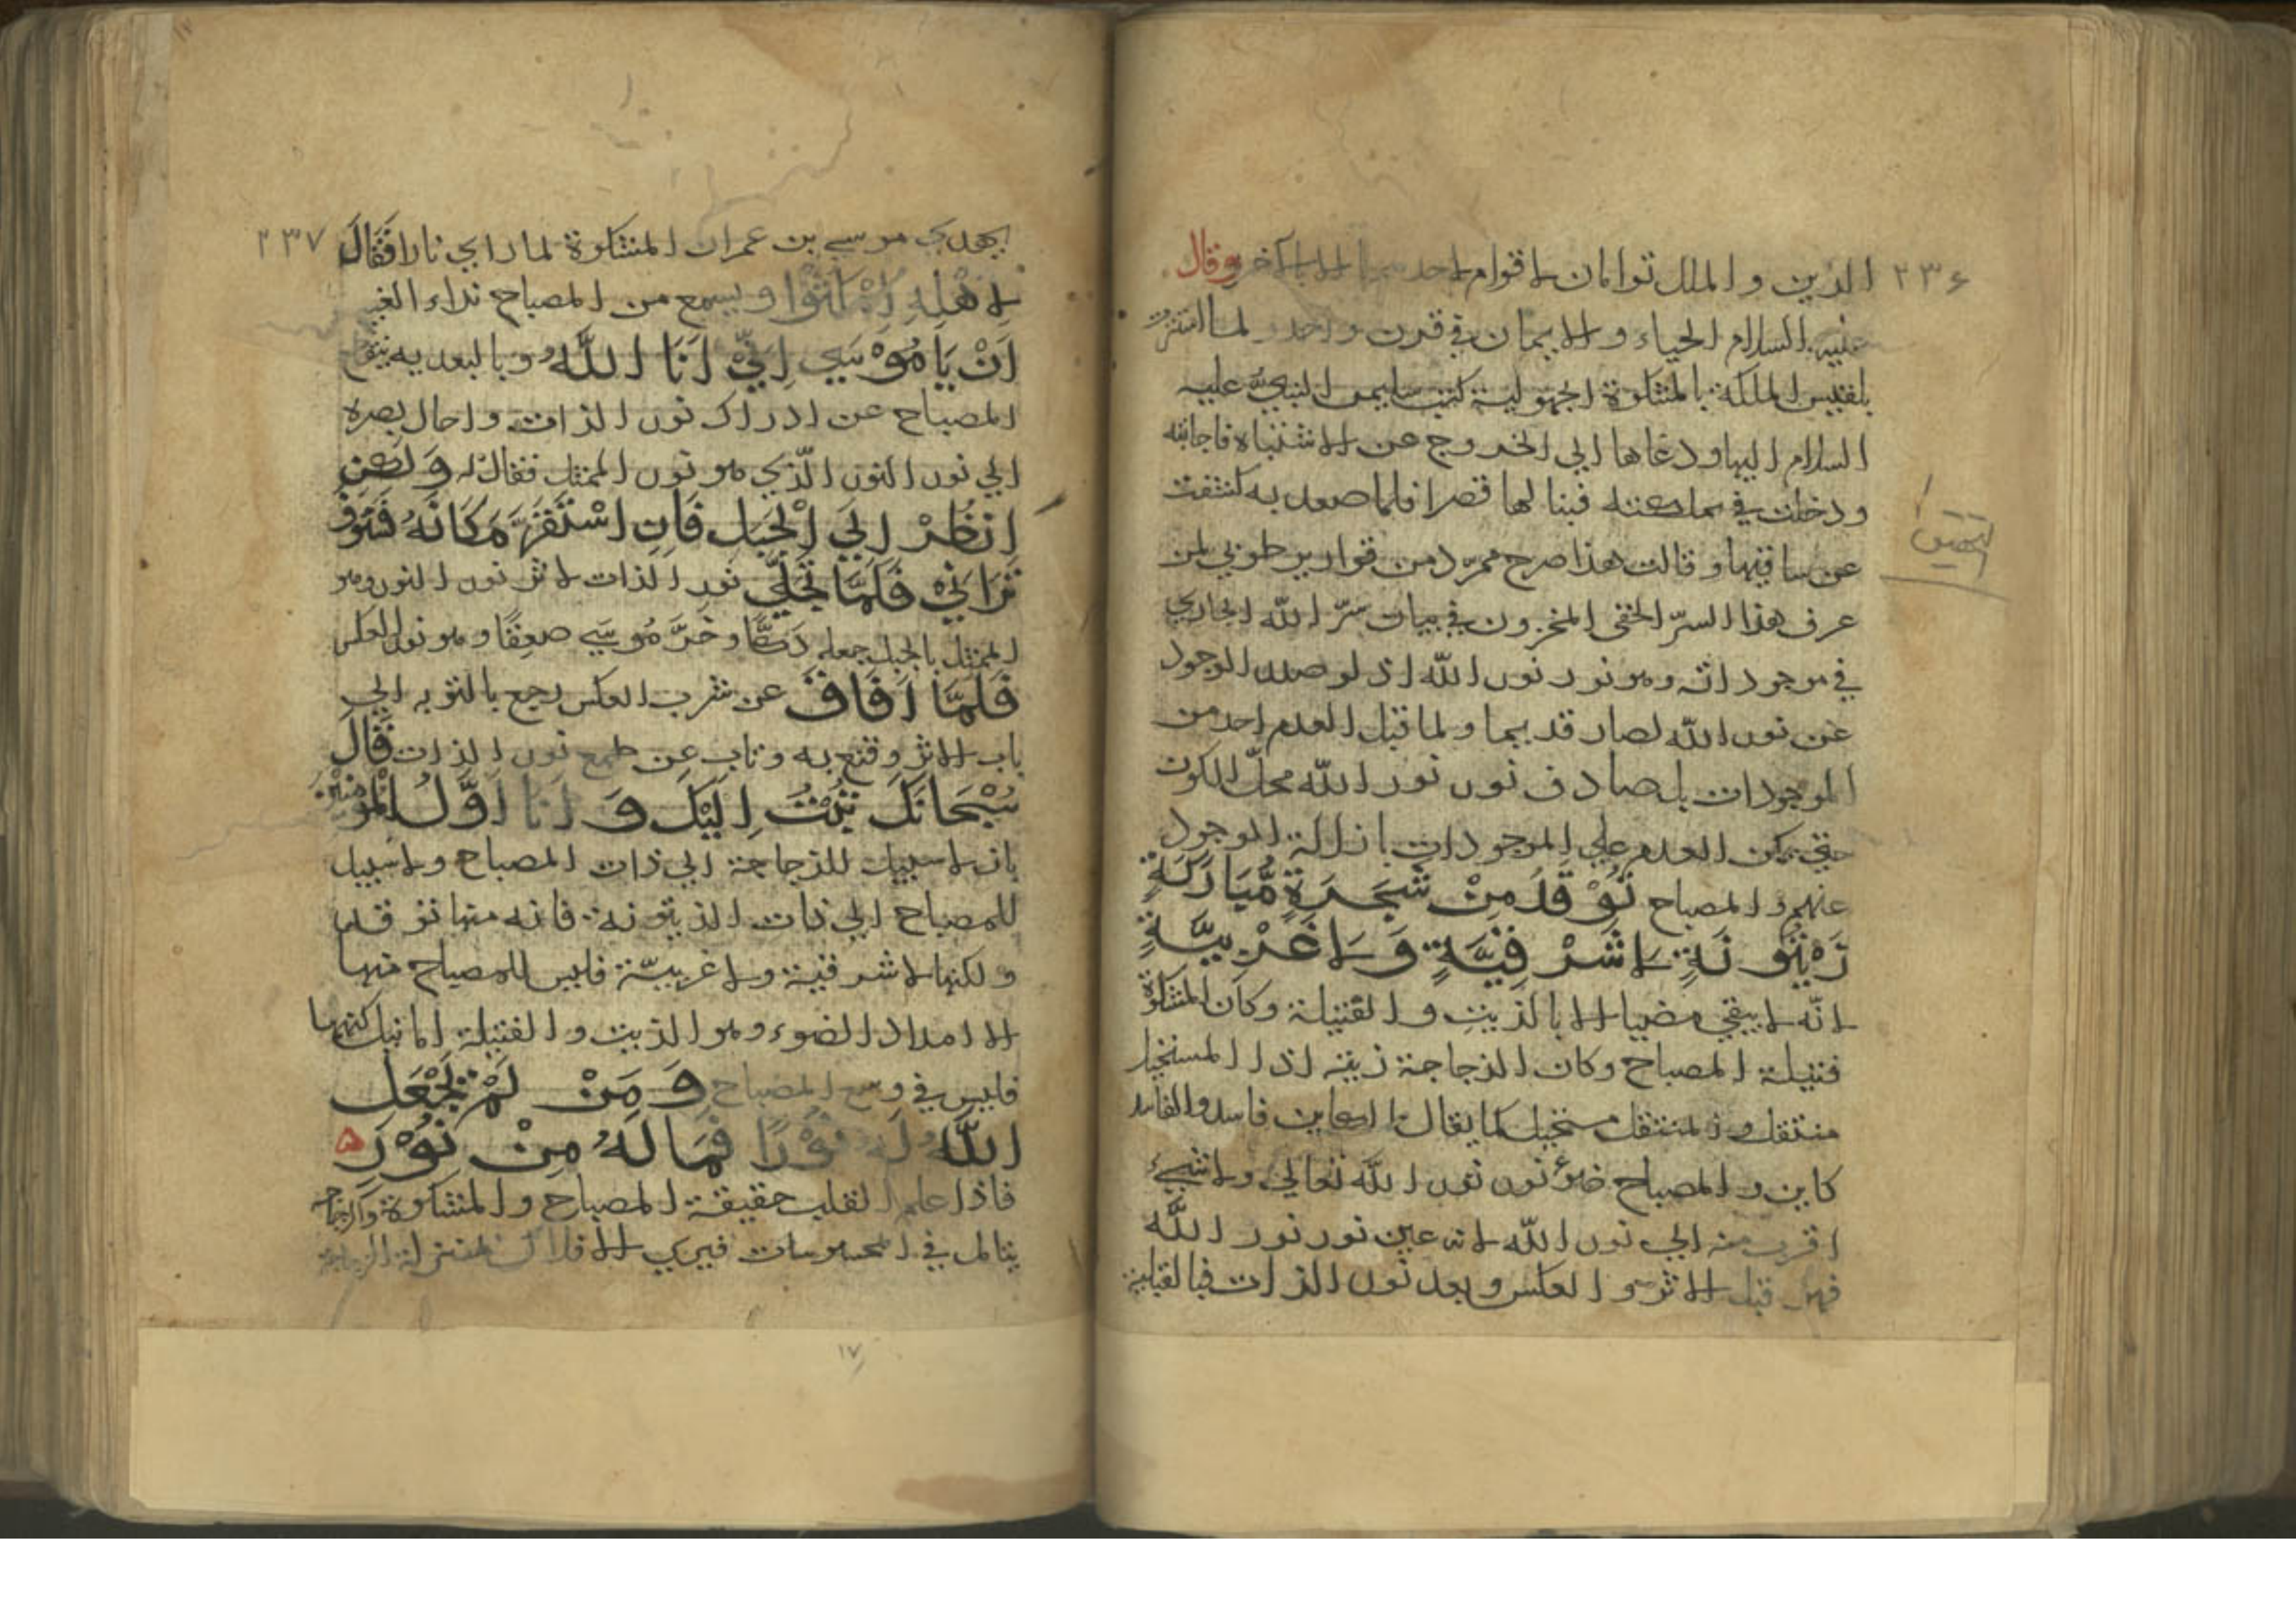 ٢٣۶
الدين و الملك توامان لا قوام لاحدهما الا بالآخر وقال
عليه السلام الحياء والايمان في قرن واحد لما
بلقيس الملكة بالمشكوة الجهولية كتب سليمن النبي عليه
السلام اليها ودعاها الي الخروج عن الاشتباه فاجابته
ودخلت في مملكته فبنا لها قصرا فلما صعد به كشفت
عن ساقيها و قالت هذا صرح ممرد من قوارير طوبي لمن
عرف هذا السرّ الخفي المخزون في بيات سرّ الله الجاري
في موجوداته وهو نور نور الله اذ لو صدر الوجود
عن نور الله لصار قديما و لما قبل العدم احد من
الموجودات بل صادف نور نور الله محلّ الكون
حتي يمكن العدم علي الموجودات بازالة الوجود
عنهم و المصباح تُوْقَدُ مِنْ شَجَرَةٍ مُّبَارَكَةٍ
زَيْتُونَةٍ لَا شَرْقِيَّةٍ وَلَا غَرْبِيَّةٍ
لانّه لا يبقي مضيا الا بالزيت و الفتيلة وكان المشكوة
فتيلة المصباح وكان الزجاجة زيته اذ المستحيل
منتقل و المنتقل مستحيل كما يقال الكاين فاسد والفاسد
كاين و المصباح ضوء نور نور الله تعالي ولا شيء
اقرب منه الي نور الله لانه عين نور نور الله
فهو قبل الاثر و العكس و بعد نور الذات فبالقبلية
تحقيق
٢٣٧
يهدي موسي بن عمران المشكوة لما راي نارا فَقَالَ
لِاَهْلِهِ امْكُثُوا و يسمع من المصباح نداء الغيب
اَنْ يَا مُوْسَي اِنِّي اَنَا اللهُ وبالبعديه يمنع
المصباح عن ادراك نور الذات و احال بصره
الي نور النور الّذي هو نور الممثل فقال له وَلكِن
انْظُرْ اِلَي الْجَبَلِ فَاِنِ اسْتَقَرَّ مَكَانَهُ فَسَوْفَ
تَرَانِيْ فَلَمَّا تَجَلَّي نور الذات لاثر نور النور وهو
الممثل بالجبل جعله دَكًّا وَخَرَّ مُوسَي صَعِقًا و هو نور العكس
فَلَمَّا اَفَاقَ عن شرب العكس رجع بالتوبه الي
باب الاثر و قنع به و تاب عن طمع نور الذات قَالَ
سُبْحَانَكَ تُبْتُ اِلَيْكَ وَ اَنَا اَوَّلُ الْمُؤْمِنِيْنَ
بان لا سبيل للزجاجة الي ذات المصباح و لا سبيل
للمصباح الي ذات الزيتونة فانه منها توقد
و لكنها لا شرقية ولا غربيّة فليس للمصباح منها
الا امداد الضوء و هو الزيت و الفتيلة اما نيل كنهها
فليس في وسع المصباح وَ مَنْ لَمْ يَجْعَلِ
اللهُ لَهُ نُوْرًا فَمَا لَهُ مِنْ نُوْرٍ ۵
فاذا علم القلب حقيقة المصباح و المشكوة والزجاجة
يتامل في المحسوسات فيري الافلاك بمنزلة الزجاجة
١٧